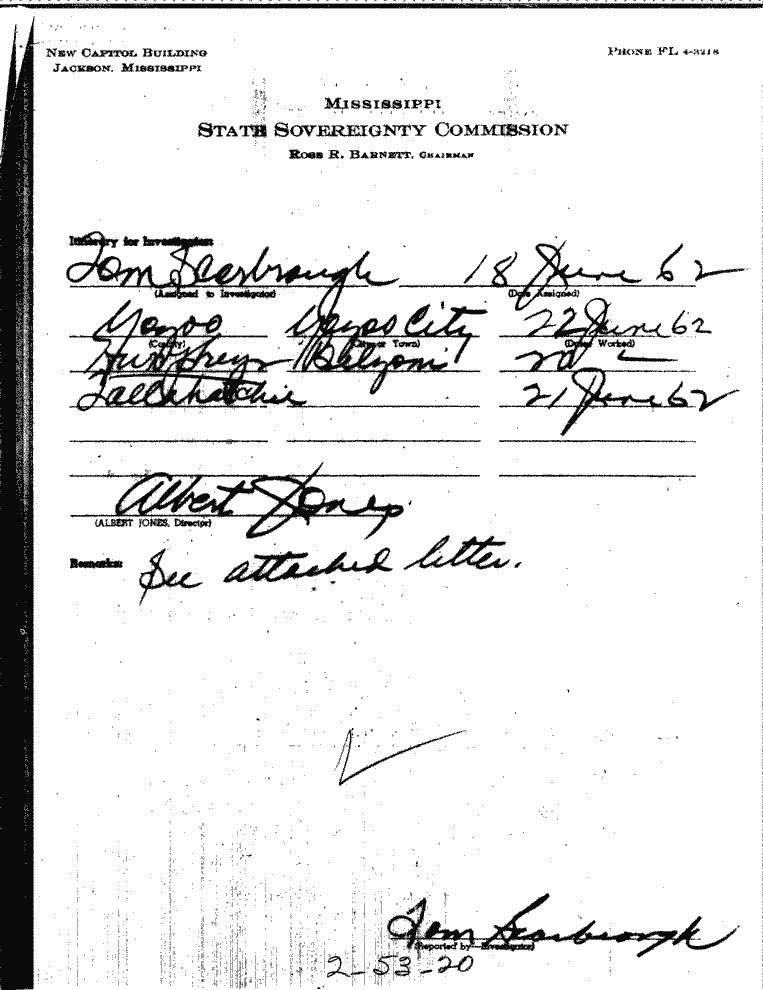 NEW CAPITOL BUILDING
JACKSON, MISSISSIPPI
PHONE FL 4-3218
MISSISSIPPI
STATE SOVEREIGNTY COMMISSION
ROSS R. BARNETT, CHAIRMAN
Itinerary for Investigator:
Tom Scarbrough 18 June 62
(Assigned to Investigator) (Date Assigned)
Yazoo Yazoo City 22 June 62
(County) (City or Town) (Dates Worked)
Humphreys Belzoni
Tallahatchie 21 June 62
Albert Jones
(ALBERT JONES, Director)
Remarks: See attached letter.
Tom Scarbrough
(Reported by—Investigator)
2-53-20